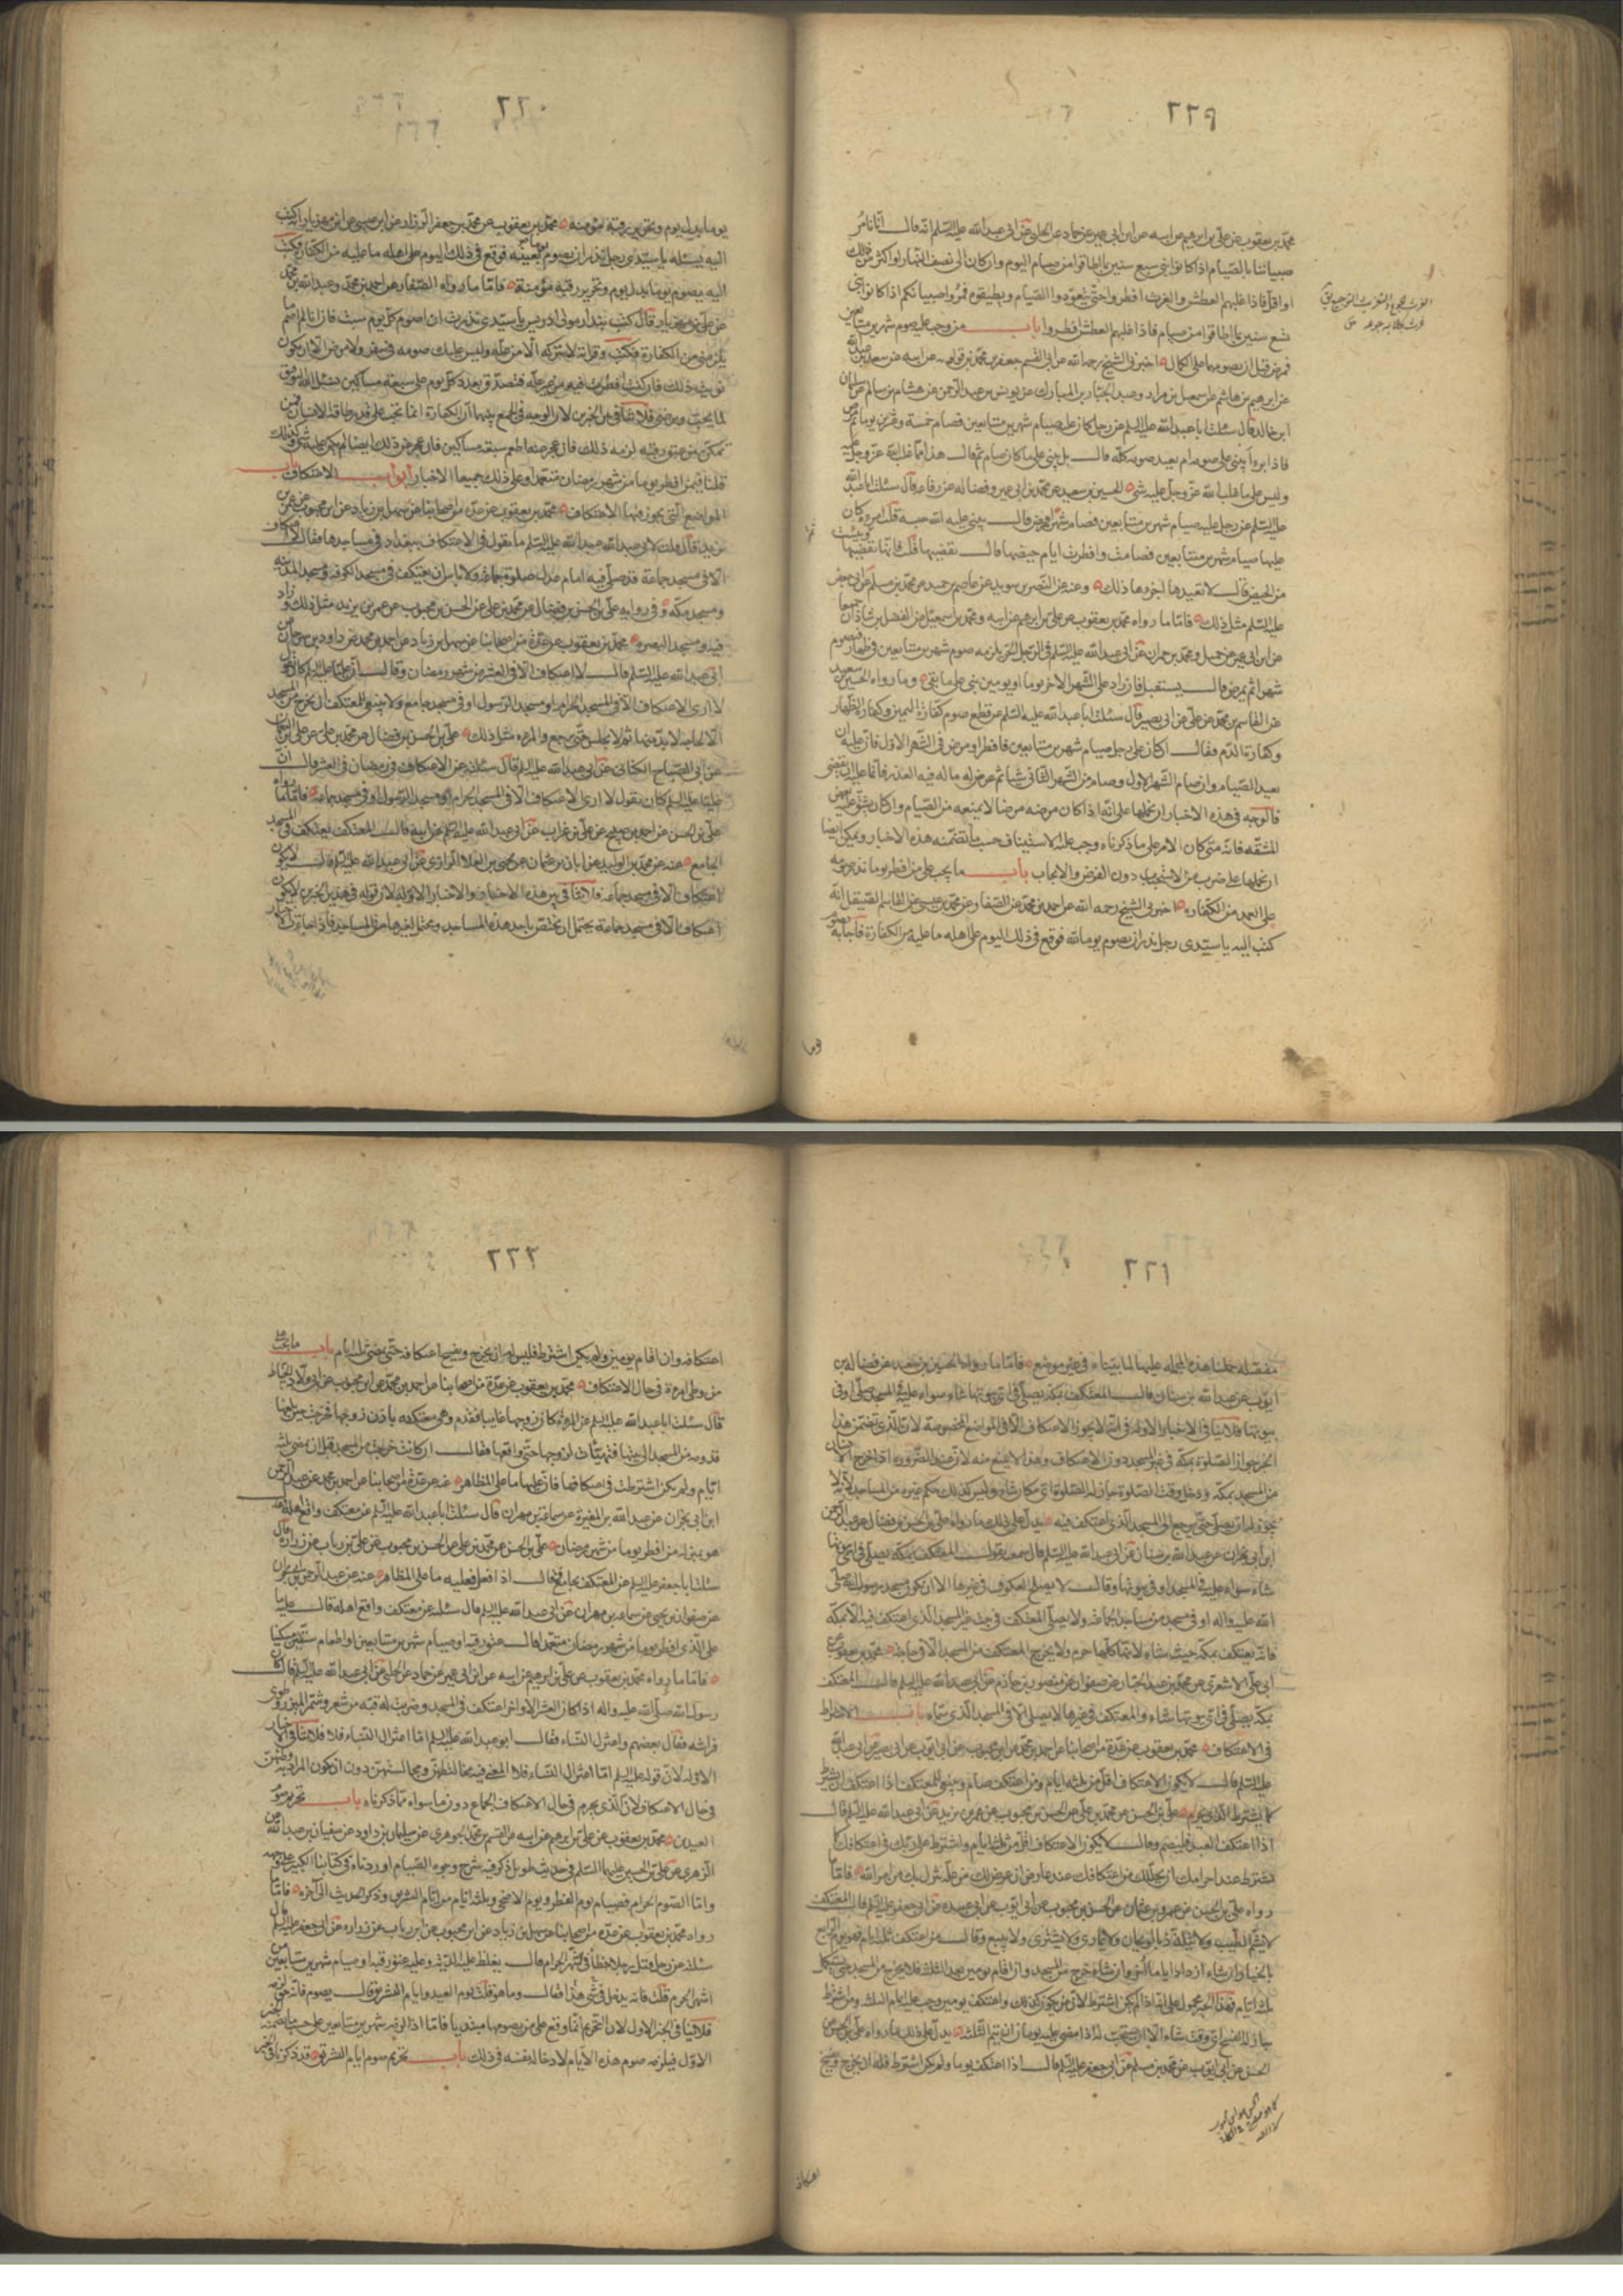 ٢٢٩
محمد بن يعقوب عن علي بن ابرهيم عن ابيه عن ابن ابي عمير عن حماد عن الحلبي عن ابي عبدالله عليه السلم انه قال انا نامر
صبياننا بالصيام اذا كانوا بني سبع سنين بما اطاقوا من صيام اليوم وان كان الى نصف النهار او اكثر من ذلك
او اقل فاذا غلبهم العطش والغرث افطروا حتى يتعودوا الصيام ويطيقوه فمروا صبيانكم اذا كانوا بني
تسع سنين بما اطاقوا من صيام فاذا غلبهم العطش افطروا باب من وجب عليه صوم شهرين متتابعين
فمرض قبل ان يصومهما على الكمال اخبرني الشيخ رحمه الله عن ابي القسم جعفر بن محمد بن قولويه عن ابيه عن سعد بن عبدالله
عن ابرهيم بن هاشم عن اسمعيل بن مراد وعبد الجبار بن المبارك عن يونس بن عبد الرحمن عن هشام بن سالم عن سليمان
ابن خالد قال سئلت ابا عبدالله عليه السلم عن رجل كان عليه صيام شهرين متتابعين فصام خمسة وعشرين يوما ثم مرض
فاذا برء أيبني على صومه ام يعيد صومه كله قال بل يبني على ما كان صام ثم قال هذا مما غلب الله عز وجل عليه
وليس على ما غلب الله عز وجل عليه شئ الحسين بن سعيد عن محمد بن ابي عمير وفضاله عن رفاعه قال سئلت ابا عبد الله
عليه السلم عن رجل عليه صيام شهرين متتابعين فصام شهرا ومرض قال يبني عليه الله حبسه قلت امرءة كان
عليها صيام شهرين متتابعين فصامت وافطرت ايام حيضها قال تقضيها قلت فانها تقضيها
من الحيض قال لا تعيدها اجزءها ذلك وعنه عن النضر بن سويد عن عاصم بن حميد عن محمد بن مسلم عن ابي جعفر
عليه السلم مثل ذلك فاما ما رواه محمد بن يعقوب عن علي بن ابرهيم عن ابيه ومحمد بن اسمعيل عن الفضل بن شاذان جميعا
عن ابن ابي عمير عن جميل ومحمد بن حمران عن ابي عبدالله عليه السلم في الرجل الحر يلزمه صوم شهرين متتابعين في ظهار فيصوم
شهرا ثم يمرض قال يستقبل فان زاد على الشهر الاخر يوما او يومين بنى على ما بقي وما رواه الحسين بن سعيد
عن القاسم بن محمد عن علي عن ابي بصير قال سئلت ابا عبدالله عليه السلم عن قطع صوم كفارة اليمين وكفارة الظهار
وكفارة الدم فقال ان كان على رجل صيام شهرين متتابعين فافطر او مرض في الشهر الاول فان عليه ان
يعيد الصيام وان صام الشهر الاول وصام من الشهر الثاني شيئا ثم عرض له ما له فيه العذر فانما عليه ان يقضي
فالوجه في هذه الاخبار ان نحملها على انه اذا كان مرضه مرضا لا يمنعه من الصيام وان كان يشق عليه بعض
المشقه فانه متى كان الامر على ما ذكرناه وجب عليه الاستيناف حسب ما تضمنه هذه الاخبار ويمكن ايضا
ان نحملها على ضرب من الاستحباب دون الفرض والايجاب باب ما يجب على من افطر يوما نذر صومه
على العمد من الكفاره اخبرني الشيخ رحمه الله عن احمد بن محمد عن الصفار عن محمد بن عيسى عن القاسم الصيقل انه
كتب اليه يا سيدي رجل نذر ان يصوم يوما لله فوقع في ذلك اليوم على اهله ما عليه من الكفارة فاجابه يصوم
يوما
٢٣٠
يوما بدل يوم وتحرير رقبة مؤمنه محمد بن يعقوب عن محمد بن جعفر الرزاز عن ابن عيسى عن ابن مهزيار انه كتب
اليه يسئله يا سيدي رجل نذر ان يصوم يوما بعينه فوقع في ذلك اليوم على اهله ما عليه من الكفاره فكتب
اليه يصوم يوما بدل يوم وتحرير رقبة مؤمنة فاما ما رواه الصفار عن احمد بن محمد وعبد الله بن محمد
عن علي بن مهزيار قال كتب بندار مولى ادريس يا سيدي نذرت ان اصوم كل يوم سبت فان انا لم اصم ما
يلزمني من الكفارة فكتب وقراته لا تتركه الا من علة وليس عليك صومه في سفر ولا مرض الا ان يكون
نويت ذلك فان كنت افطرت فيه من غير علة فتصدق بعدد كل يوم على سبعة مساكين نسئل الله التوفيق
لما يحب ويرضى فلا تنافي بين الخبرين لان الوجه في الجمع بينهما ان الكفارة انما تجب على قدر طاقة الانسان فمن
تمكن من عتق رقبه لزمه ذلك فان عجز عنه اطعم سبعة مساكين فان عجز عن ذلك ايضا لم يكن عليه شئ وكذلك
قلنا فيمن افطر يوما من شهر رمضان متعمدا وعلى ذلك جميعا الاخبار ابواب الاعتكاف باب
المواضع التي يجوز فيها الاعتكاف محمد بن يعقوب عن عدة من اصحابنا عن سهل بن زياد عن ابن محبوب عن عمر
بن يزيد قال قلت لابي عبد الله عليه السلم ما تقول في الاعتكاف ببغداد في مساجدها فقال لا اعتكاف
الا في مسجد جماعة قد صلى فيه امام عدل صلوة جماعة ولا باس ان يعتكف في مسجد الكوفه ومسجد المدينه
ومسجد مكه وفي رواية علي بن الحسن بن فضال عن محمد بن علي عن الحسن بن محبوب عن عمر بن يزيد مثل ذلك وزاد
فيه ومسجد البصره محمد بن يعقوب عن عدة من اصحابنا عن سهل بن زياد عن احمد بن محمد عن داود بن سرحان عن
ابي عبد الله عليه السلم قال لا اعتكاف الا في العشر من شهر رمضان وقال ان عليا عليه السلم كان يقول
لا ارى الاعتكاف الا في المسجد الحرام او مسجد الرسول او في مسجد جامع ولا ينبغي للمعتكف ان يخرج من المسجد
الا لحاجة لا بد منها ثم لا يجلس حتى يرجع والمرءة مثل ذلك علي بن الحسن بن فضال عن محمد بن علي عن علي بن النعمان
عن ابي الصباح الكناني عن ابي عبدالله عليه السلم قال سئل عن الاعتكاف في رمضان في العشر قال ان
عليا عليه السلم كان يقول لا ارى الاعتكاف الا في المسجد الحرام او مسجد الرسول او في مسجد جماعة فاما ما رواه
علي بن الحسن عن احمد بن صبيح عن علي بن غراب عن ابي عبدالله عليه السلم عن ابيه قال المعتكف يعتكف في المسجد
الجامع عنه عن محمد بن الوليد عن ابان بن عثمان عن يحيى بن العلا الرازي عن ابي عبدالله عليه السلم قال لا يكون
اعتكاف الا في مسجد جماعه فلا تنافي بين هذه الاخبار والاخبار الاوله لان قوله في هذين الخبرين لا يكون
اعتكاف الا في مسجد جماعة يحتمل ان يختص باحد هذه المساجد ويحتمل لغيرها من المساجد فاذا جاءت الاخبار
٢٣١
مفصله حملنا هذه المجمله عليها لما بيناه في غير موضع فاما ما رواه الحسين بن سعيد عن فضاله بن
ايوب عن عبدالله بن سنان قال المعتكف بمكة يصلي في اي بيوتها شاء سواء عليه في المسجد صلى او في
بيوتها فلا ينافي الاخبار الاوله في انه لا يجوز الاعتكاف الا في المواضع المخصوصة لان الذي تضمن هذا
الخبر جواز الصلوة بمكة في غير المسجد دون الاعتكاف وهذا لا يمتنع منه لان عند الضروره اذا خرج الانسان
من المسجد بمكة ودخل وقت الصلوة جاز له الصلوة اي مكان شاء وليس كذلك حكم غيره من المساجد لانه لا
يجوز له ان يصلي حتى يرجع الى المسجد الذي اعتكف فيه يدل على ذلك ما رواه علي بن الحسن بن فضال عن عبد الرحمن
ابن ابي نجران عن عبدالله بن سنان عن ابي عبدالله عليه السلم قال سمعته يقول المعتكف بمكة يصلي في اي بيوتها
شاء سواء عليه في المسجد او في بيوتها وقال لا يصلح العكوف في غيرها الا ان يكون مسجد رسول الله صلى
الله عليه واله او في مسجد من مساجد الجماعة ولا يصلي المعتكف في بيت غير المسجد الذي اعتكف فيه الا بمكة
فانه يعتكف بمكة حيث شاء لانها كلها حرم ولا يخرج المعتكف من المسجد الا في حاجة محمد بن يعقوب عن
ابي علي الاشعري عن محمد بن عبد الجبار عن صفوان عن منصور بن حازم عن ابي عبدالله عليه السلم قال المعتكف
بمكة يصلي في اي بيوتها شاء والمعتكف في غيرها لا يصلي الا في المسجد الذي سماه باب الاشتراط
في الاعتكاف محمد بن يعقوب عن عدة من اصحابنا عن احمد بن محمد عن ابن محبوب عن ابي ايوب عن ابي بصير عن ابي عبدالله
عليه السلم قال لا يكون الاعتكاف اقل من ثلثه ايام ومن اعتكف صام وينبغي للمعتكف اذا اعتكف ان يشترط
كما يشترط الذي يحرم علي بن الحسن عن محمد بن علي عن الحسن بن محبوب عن عمر بن يزيد عن ابي عبدالله عليه السلم قال
اذا اعتكف العبد فليصم وقال لا يكون الاعتكاف اقل من ثلثة ايام واشترط على ربك في اعتكافك كما
تشترط عند احرامك ان يحلك من اعتكافك عند عارض ان عرض لك من علة تنزل بك من امر الله فاما ما
رواه علي بن الحسن عن عمرو بن عثمان عن الحسن بن محبوب عن ابي ايوب عن ابي عبيده عن ابي جعفر عليه السلم قال المعتكف
لا يشم الطيب ولا يتلذذ بالريحان ولا يماري ولا يشتري ولا يبيع وقال من اعتكف ثلثة ايام فهو يوم الرابع
بالخيار ان شاء ازداد اياما اخر وان شاء خرج من المسجد وان اقام يومين بعد الثلثه فلا يخرج من المسجد حتى يستكمل
ثلثة ايام فهذا الخبر محمول على انه اذا لم يكن اشترط
جاز له الفسخ اي وقت شاء الا ان
الحسن عن ابي ايوب عن محمد بن مسلم عن ابي جعفر عليه السلم قال اذا اعتكف يوما ولم يكن اشترط فله ان يخرج ويفسخ
اعتكافه
٢٣٢
اعتكافه وان اقام يومين ولم يكن اشترط فليس له ان يخرج ويفسخ اعتكافه حتى يمضي ثلثة ايام باب ما يجب على
من وطى امرءة في حال الاعتكاف محمد بن يعقوب عن عدة من اصحابنا عن احمد بن محمد عن ابن محبوب عن ابي ولاد الحناط
قال سئلت ابا عبدالله عليه السلم عن امرءة كان زوجها غايبا فقدم وهي معتكفه باذن زوجها فخرجت حين بلغها
قدومه من المسجد الى بيتها فتهيات لزوجها حتى واقعها فقال ان كانت خرجت من المسجد قبل ان يمضي ثلثه
ايام ولم تكن اشترطت في اعتكافها فان عليها ما على المظاهر عنه عن عدة من اصحابنا عن احمد بن محمد عن عبد الرحمن
ابن ابي نجران عن عبدالله بن المغيرة عن سماعة بن مهران قال سئلت ابا عبدالله عليه السلم عن معتكف واقع اهله قال
هو بمنزله من افطر يوما من شهر رمضان علي بن الحسن عن محمد بن علي عن الحسن بن محبوب عن علي بن رياب عن زراره قال
سئلت ابا جعفر عليه السلم عن المعتكف يجامع قال اذا فعل فعليه ما على المظاهر عنه عن عبد الرحمن بن ابي نجران
عن صفوان بن يحيى عن سماعه بن مهران عن ابي عبدالله عليه السلم قال سئلته عن معتكف واقع اهله قال عليه ما
على الذي افطر يوما من شهر رمضان متعمدا قال عتق رقبه او صيام شهرين متتابعين او اطعام ستين مسكينا
فاما ما رواه محمد بن يعقوب عن علي بن ابرهيم عن ابيه عن ابن ابي عمير عن حماد عن الحلبي عن ابي عبدالله عليه السلم قال كان
رسول الله صلى الله عليه واله اذا كان العشر الاواخر اعتكف في المسجد وضربت له قبه من شعر وشمر الميزر وطوى
فراشه فقال بعضهم واعتزل النساء فقال ابو عبدالله عليه السلم اما اعتزال النساء فلا فلا ينافي الاخبار
الاوله لان قوله عليه السلم اما اعتزال النساء فلا المعنى فيه مخالطتهن ومجالستهن دون ان يكون المراد به وطئهن
في حال الاعتكاف لان الذي يحرم في حال الاعتكاف الجماع دون ما سواه مما ذكرناه باب تحريم صوم
العيدين محمد بن يعقوب عن علي بن ابرهيم عن ابيه عن القسم بن محمد الجوهري عن سليمان بن داود عن سفيان بن عيينه عن
الزهري عن علي بن الحسين عليهما السلم في حديث طويل ذكر فيه شرح وجوه الصيام اوردناه في كتابنا الكبير
واما الصوم الحرام فصيام يوم الفطر ويوم الاضحى وثلثه ايام من ايام التشريق وذكر الحديث الى آخره فاما ما
رواه محمد بن يعقوب عن عدة من اصحابنا عن سهل بن زياد عن ابن محبوب عن ابن رياب عن زراره عن ابي جعفر عليه السلم قال
سئلته عن رجل قتل رجلا خطأ في الشهر الحرام قال يغلظ عليه الدية وعليه عتق رقبه او صيام شهرين متتابعين من
اشهر الحرم قلت فانه يدخل في هذا شئ فقال وما هو قلت يوم العيد وايام التشريق قال يصوم فانه حق لزمه
فلا ينافي الخبر الاول لان التحريم انما وقع على من يصومهما مبتدءا فاما اذا لزمه شهرين متتابعين على حسب ما تضمنه الخبر
الاول فيلزمه صوم هذه الايام لادخاله نفسه في ذلك باب تحريم صوم ايام التشريق قد ذكرنا في الخبر